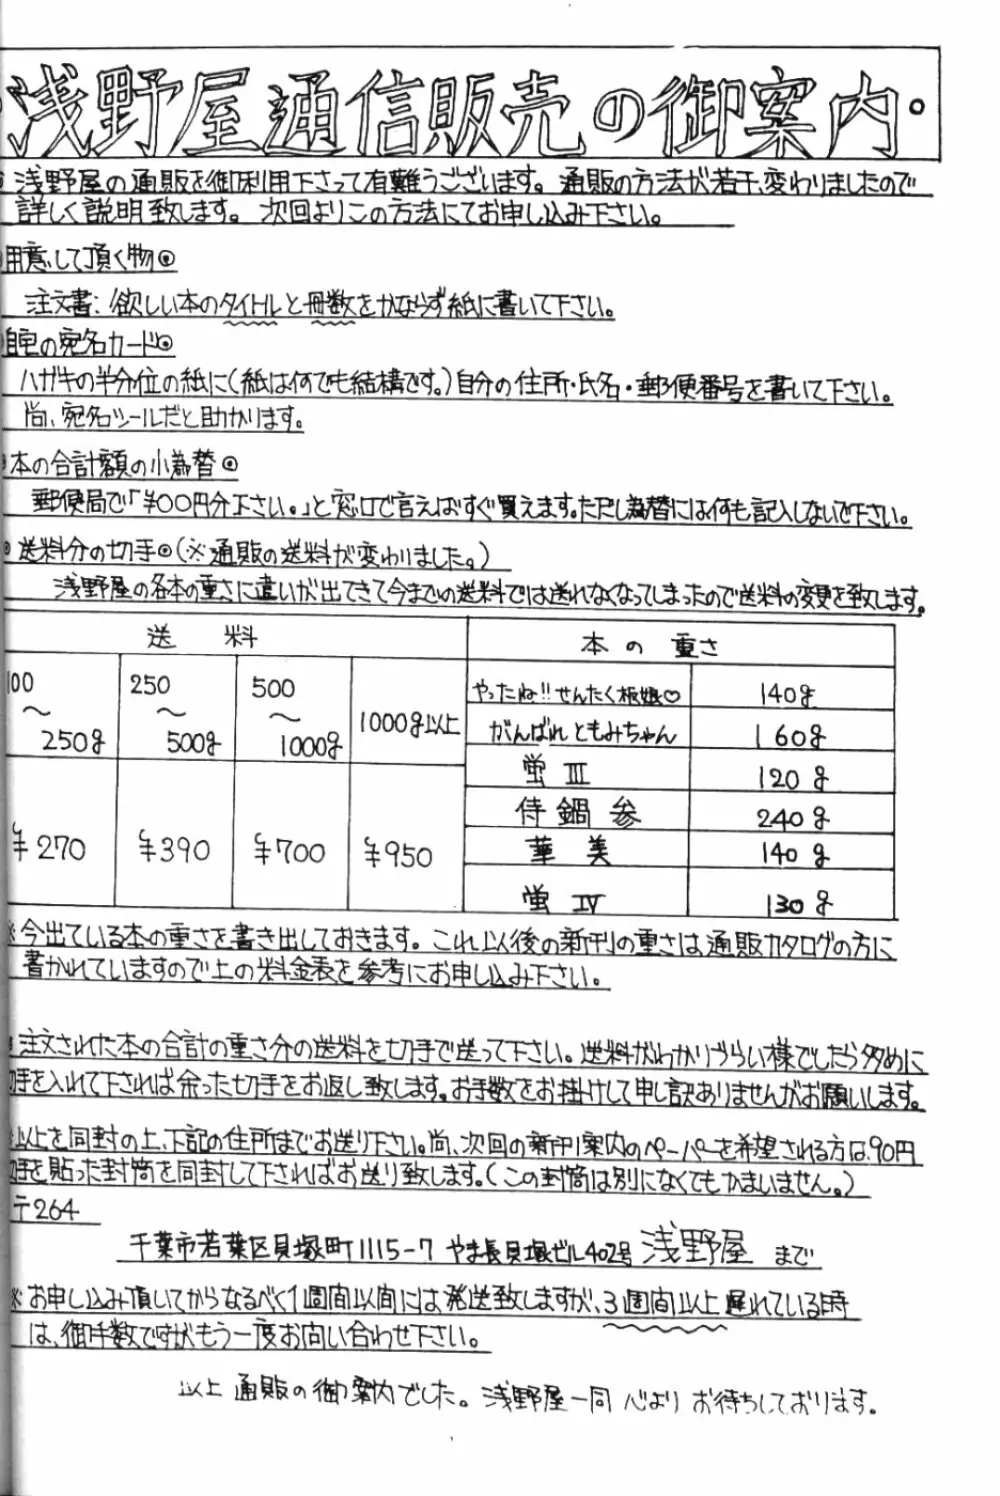 浅野屋通信販売の御案内・
浅野屋の通販を御利用下さって有難うございます。通販の方法が若干、変わりましたので
詳しく説明致します。次回よりこの方法にてお申し込み下さい。
用意して頂く物◎
注文書:欲しい本のタイトルと冊数をかならず紙に書いて下さい。
自宅の宛名カード◎
ハガキの半分位の紙に(紙は何でも結構です。)自分の住所・氏名・郵便番号を書いて下さい。
尚、宛名シールだと助かります。
本の合計額の小為替◎
郵便局で「¥○○円分下さい。」と窓口で言えばすぐ買えます。ただし為替には何も記入しないで下さい。
◎送料分の切手◎(※通販の送料が変わりました。)
浅野屋の各本の重さに違いが出てきて今までの送料では送れなくなってしまったので送料の変更を致します。
送料 本の重さ
100〜250g 250〜500g 500〜1000g 1000g以上
¥270 ¥390 ¥700 ¥950
やったね!!せんたく板娘♡ 140g
がんばれともみちゃん 160g
蛍III 120g
侍鍋参 240g
華美 140g
蛍IV 130g
※今出ている本の重さを書き出しておきます。これ以後の新刊の重さは通販カタログの方に
書かれていますので上の料金表を参考にお申し込み下さい。
注文された本の合計の重さ分の送料を切手で送って下さい。送料がわかりづらい様でしたら多めに
切手を入れて下されば余った切手をお返し致します。お手数をお掛けして申し訳ありませんがお願いします。
以上を同封の上、下記の住所までお送り下さい。尚、次回の新刊案内のペーパーを希望される方は、90円
切手を貼った封筒を同封して下さればお送り致します。(この封筒は別になくてもかまいません。)
〒264
千葉市若葉区貝塚町1115-7 やま長貝塚ビル402号 浅野屋 まで
※お申し込み頂いてからなるべく1週間以間には発送致しますが、3週間以上遅れている時
は、御手数ですがもう一度お問い合わせ下さい。
以上 通販の御案内でした。浅野屋一同 心よりお待ちしております。